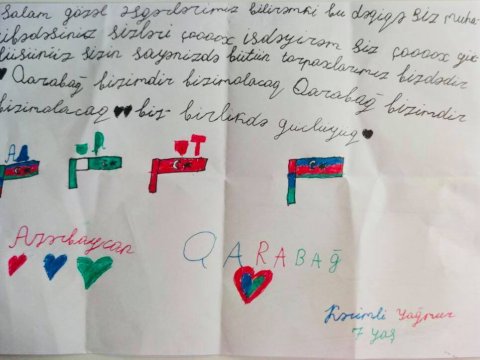 Salam gözəl əsgərlərimiz bilirəmki bu dəqiqə siz muha
ribədəsiniz sizləri çoooox isdəyirəm siz çoooox güc
lüsünüz sizin sayənizdə bütün torpaxlarımız bizdədir
Qarabağ bizimdir bizimolacaq Qarabağ bizimdir
bizimolacaq biz birlikdə gucluyuq
A
P
T
Azərbaycan
QARABAğ
Kərimli Yağmur
7 yaş